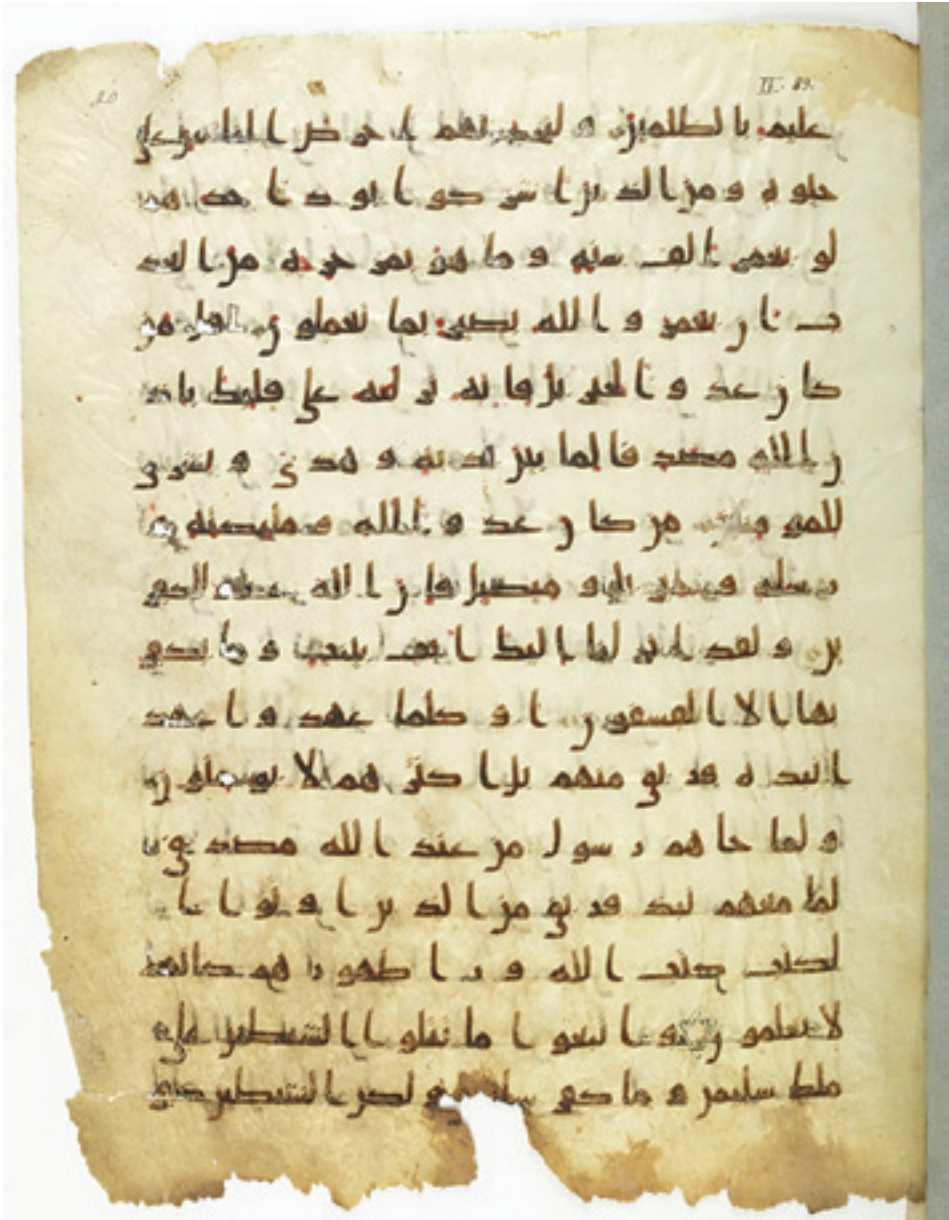 20 II. 89.
عليم بالظلمين ولتجدنهم احرص الناس على
حيوة ومن الذين اشركوا يود احدهم
لو يعمر الف سنة وما هو بمزحزحه من العذ
اب ان يعمر والله بصير بما يعملون قل من
كان عدوا لجبريل فانه نزله على قلبك باذ
ن الله مصدقا لما بين يديه وهدى وبشرى
للمومنين من كان عدوا لله وملئكته و
رسله وجبريل وميكيل فان الله عدو للكفر
ين ولقد انزلنا اليك ايت بينت وما يكفر
بها الا الفسقون اوكلما عهدوا عهد
ا نبذه فريق منهم بل اكثرهم لا يومنون
ولما جاهم رسول من عند الله مصدق
لما معهم نبذ فريق من الذين اوتوا ا
لكتب كتب الله ورا ظهورهم كانهم
لا يعلمون واتبعوا ما تتلوا الشيطين على
ملك سليمن وما كفر سليمن ولكن الشيطين كفر